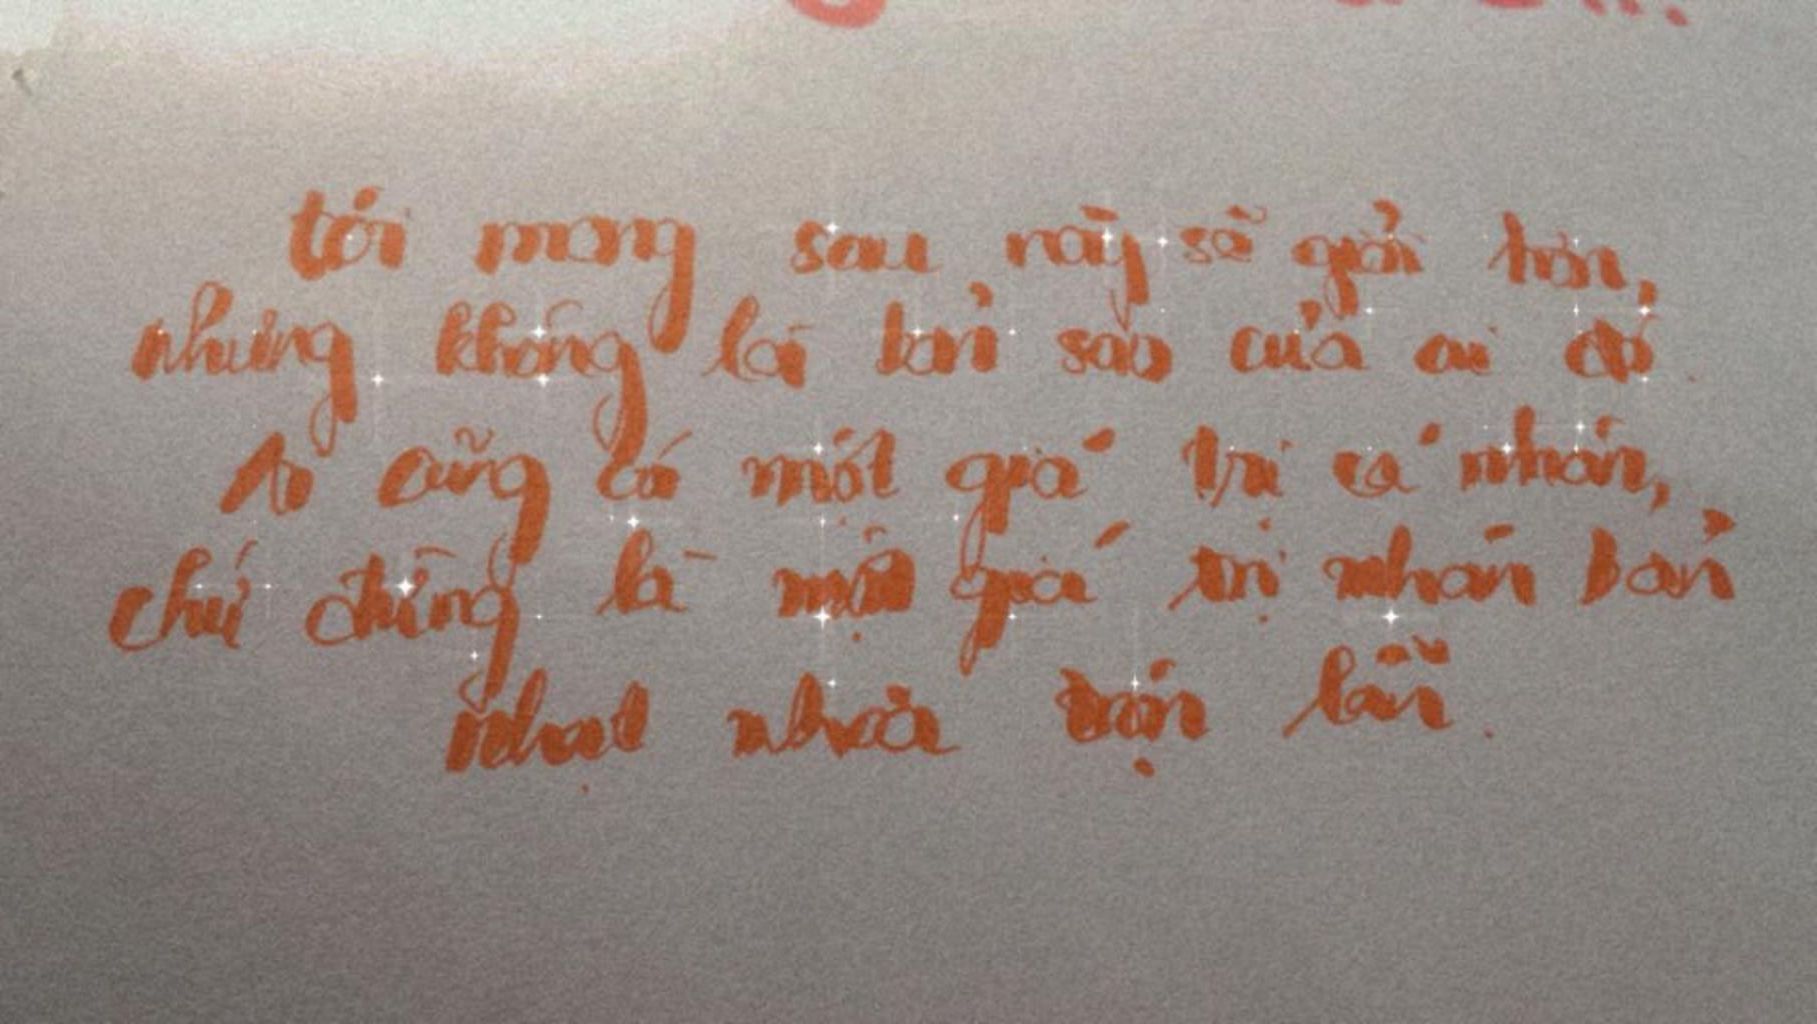 tôi mong sau này sẽ giỏi hơn,
nhưng không là bản sao của ai đó
Ai cũng có một giá trị cá nhân,
chứ đừng là một giá trị nhân bản
nhạt nhòa lẫn.